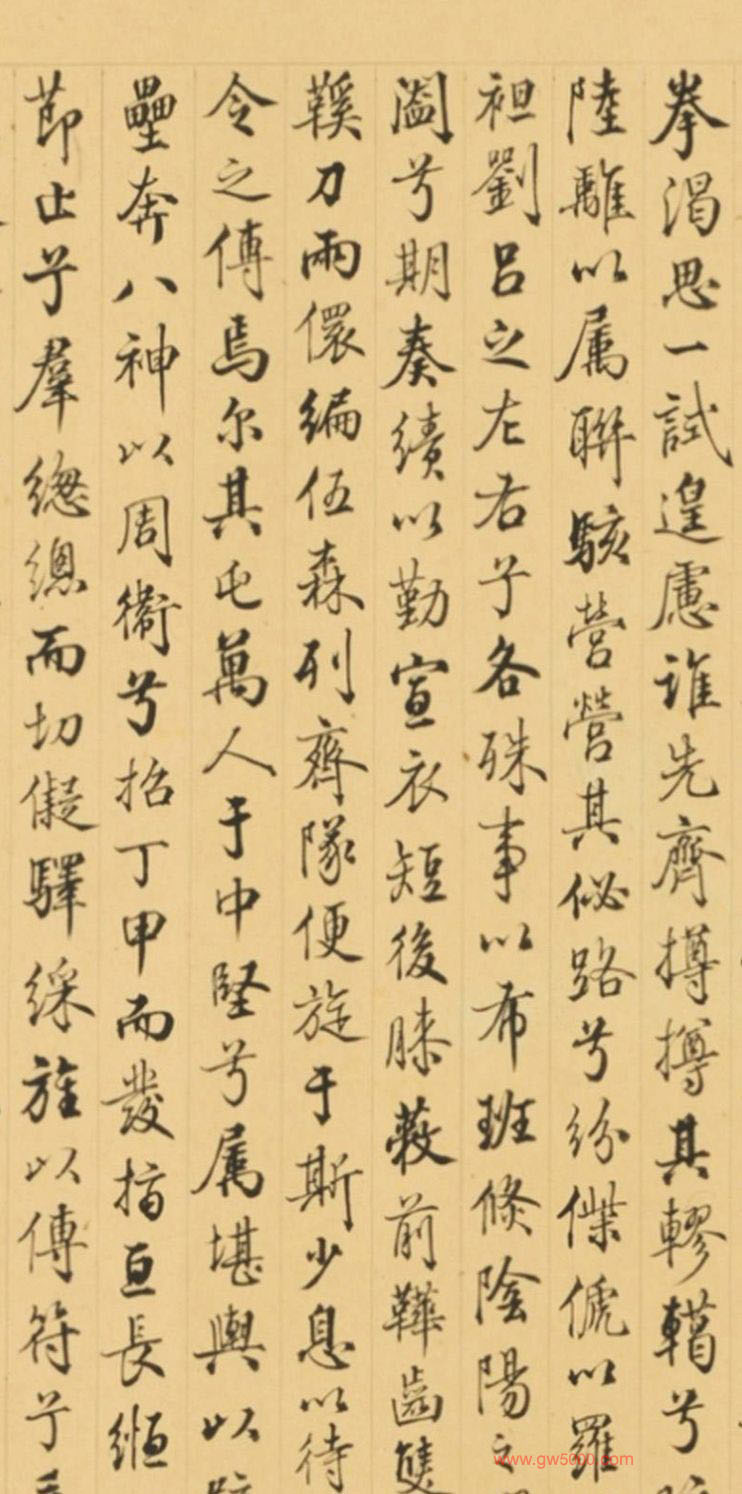 拳渴思一試遑慮誰先齊撙撙其轇轕兮
陸離以属聯駭營營其佖路兮紛傑俿以羅
袒劉呂之左右兮各殊事以布班倏陰陽之
闔兮期奏績以勤宣衣短後膝蔽前鞾齒雙
鞵刀兩儇編伍森列齊隊便旋于斯少息以待
令之傳焉尔其屯萬人于中堅兮属堪輿以
壘奔八神以周衛兮招丁甲而發指亘長縆
節止兮羣總總而切儗驛綵旌以傳符兮
www.gw5000.com